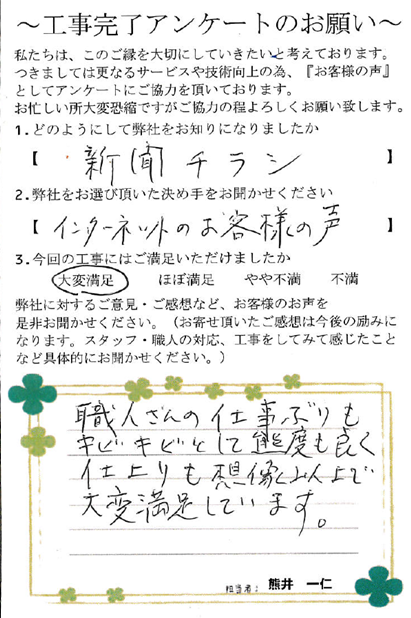 ～工事完了アンケートのお願い～
私たちは、このご縁を大切にしていきたいと考えております。
つきましては更なるサービスや技術向上の為、『お客様の声』
としてアンケートにご協力を頂いております。
お忙しい所大変恐縮ですがご協力の程よろしくお願い致します。
1.どのようにして弊社をお知りになりましたか
【 新聞チラシ 】
2.弊社をお選び頂いた決め手をお聞かせください
【 インターネットのお客様の声 】
3.今回の工事にはご満足いただけましたか
大変満足 ほぼ満足 やや不満 不満
弊社に対するご意見・ご感想など、お客様のお声を
是非お聞かせください。（お寄せ頂いたご感想は今後の励みに
なります。スタッフ・職人の対応、工事をしてみて感じたこと
など具体的にお聞かせください。）
職人さんの仕事ぶりも
キビキビとして態度も良く
仕上りも想像以上で
大変満足しています。
担当者： 熊井 一仁